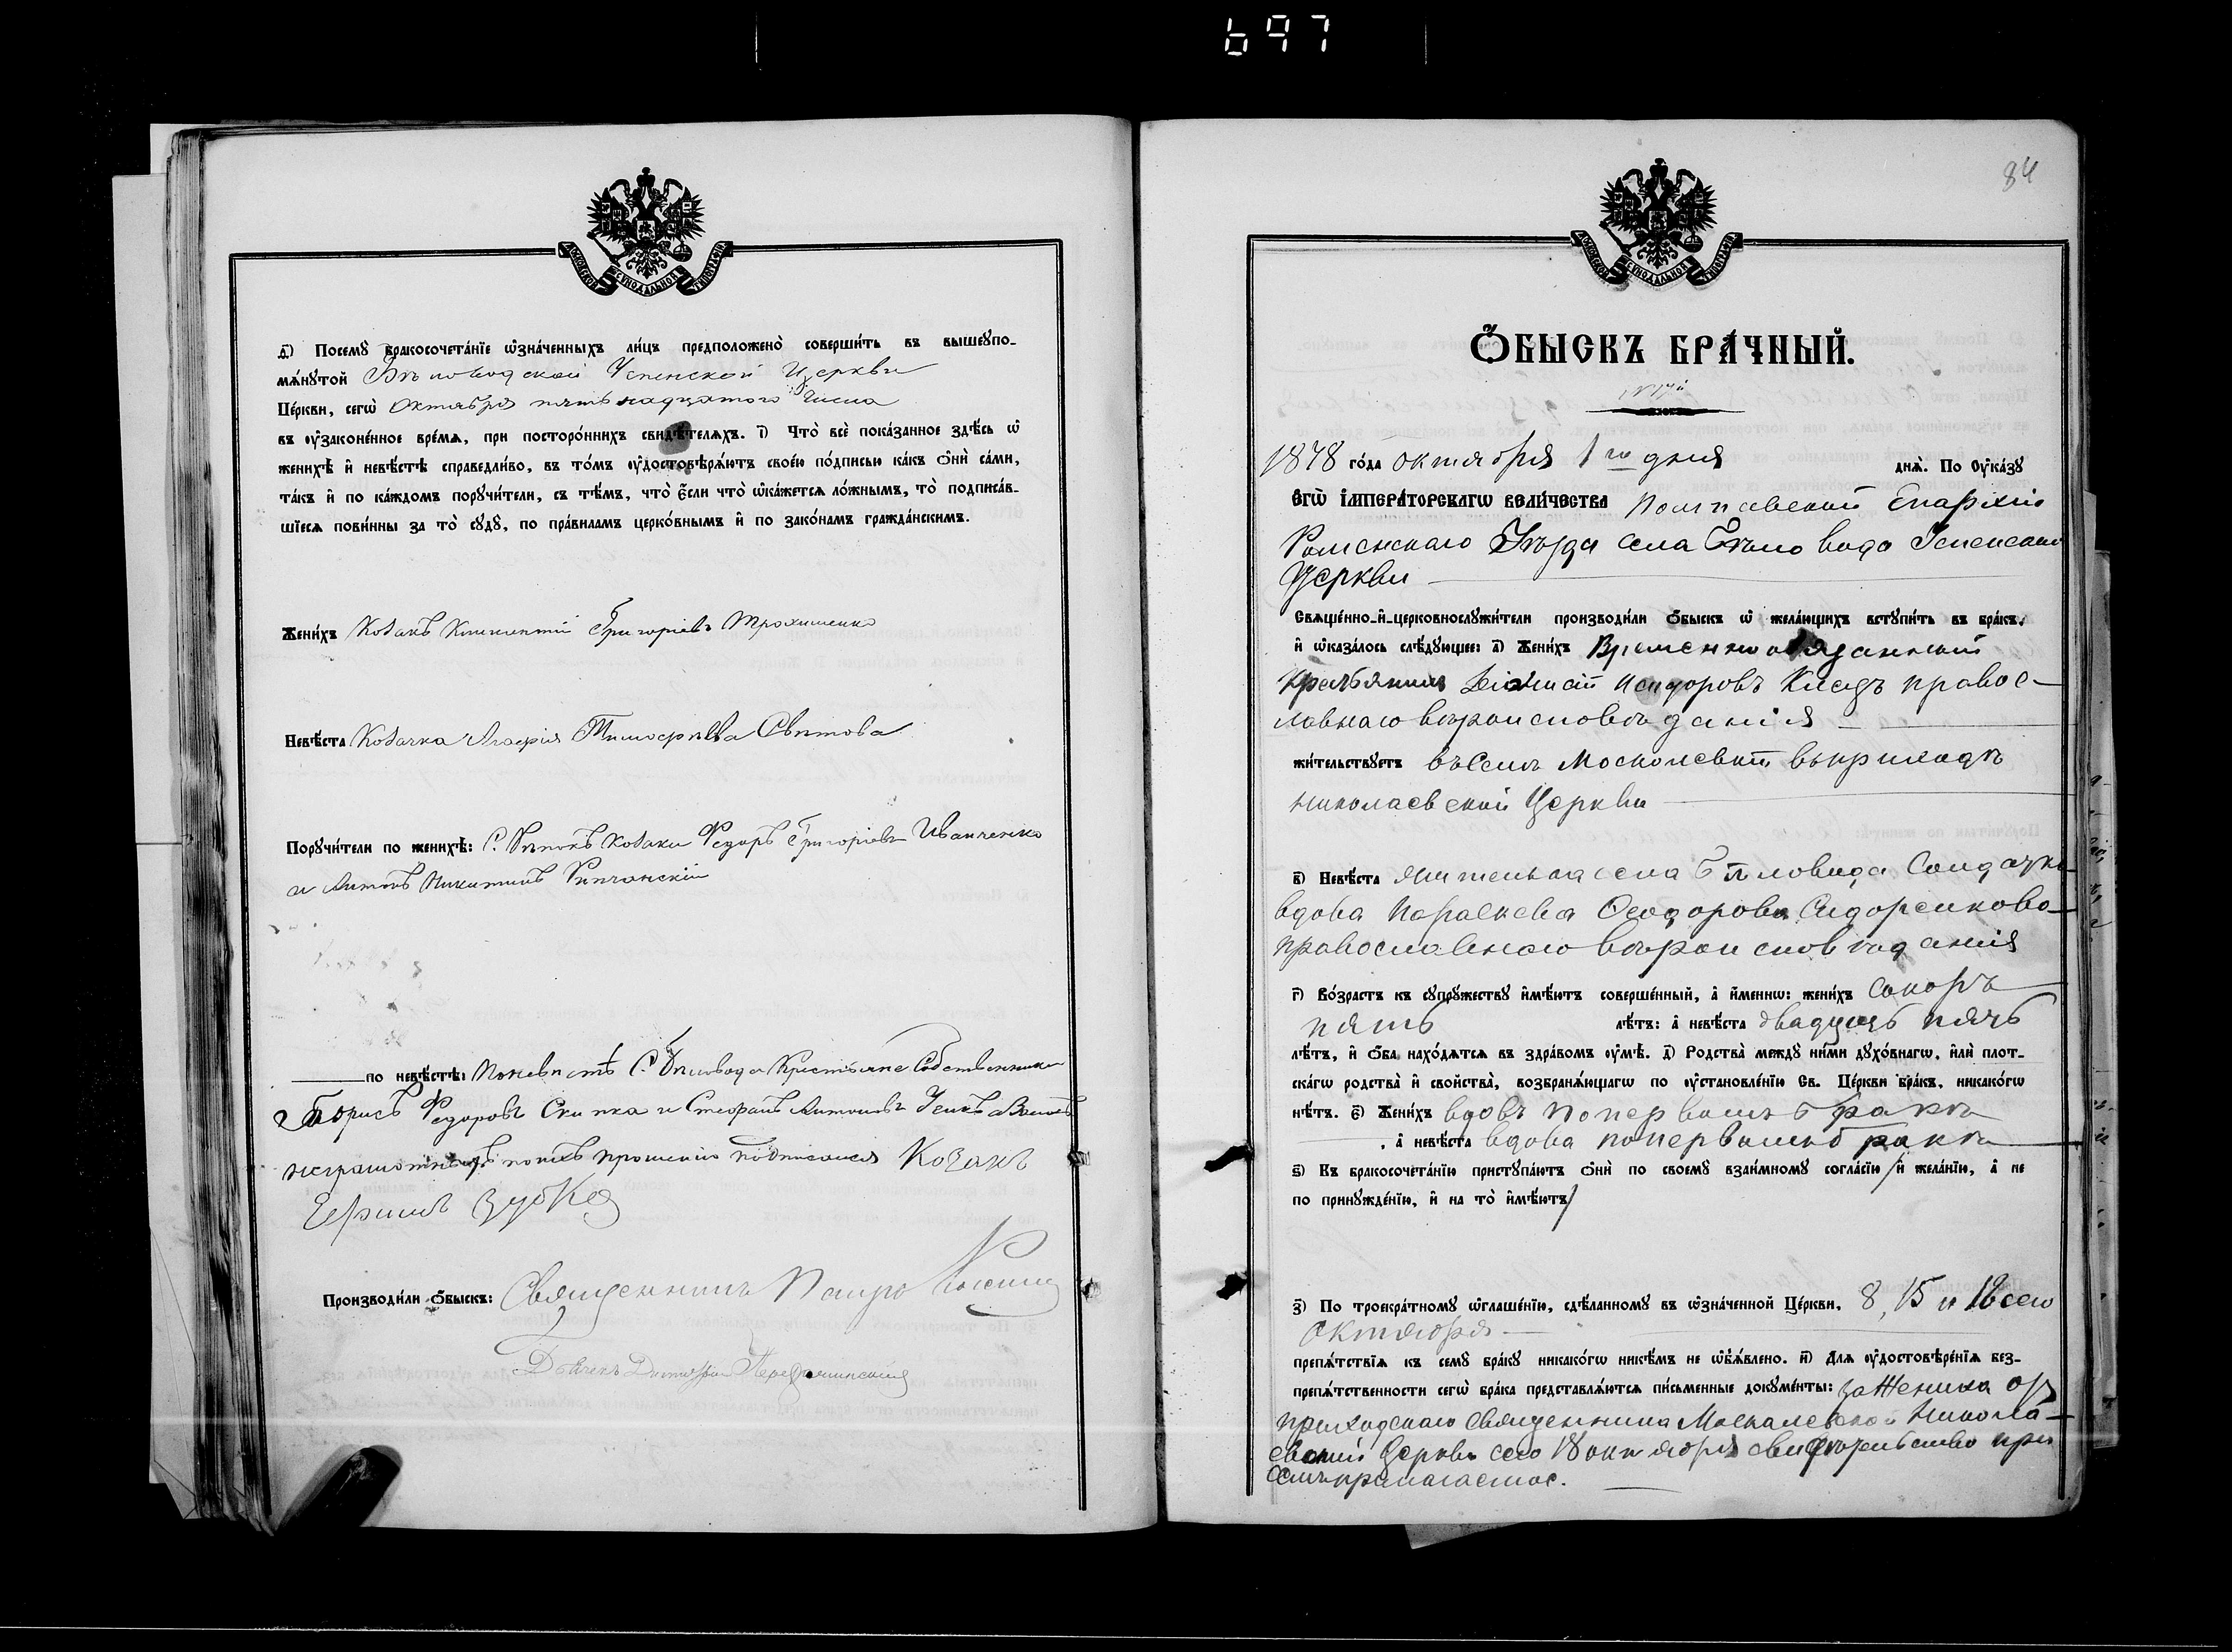 697
МОСКОВСКОЙ СѴНОДАЛЬНОЙ ТИПОГРАФІИ
ѳ҃) Посемꙋ̀ бракосочета́нїе ѡ҆зна́ченныхъ ли́цъ предположено̀ соверши́ть въ вышеꙋпо-
мѧ́нꙋтой Бѣловодской Успенской Церкви
Це́ркви, сегѡ̀ Октября пятьнадцатого числа
въ ᲂу҆законе́нное вре́мѧ, при посторо́ннихъ свидѣ́телѧхъ. і҃) Что̀ всѐ пока́занное здѣ́сь ѡ҆
женихѣ̀ и҆ невѣ́стѣ справедли́во, въ то́мъ ᲂу҆достовѣрѧ́ютъ свое́ю по́дписью ка́къ ѻ҆нѝ са́ми,
та́къ и҆ по ка́ждомъ порꙋчи́тели, съ тѣ́мъ, что̀ є҆́сли что̀ ѡ҆ка́жетсѧ ло́жнымъ, то̀ подписа́в-
шїесѧ пови́нны за то̀ сꙋдꙋ̀, по пра́виламъ церко́внымъ и҆ по зако́намъ гражда́нскимъ.
Жени́хъ Козакъ Климентій Григоріевъ Трохименко
Невѣ́ста Козачка Агафія Тимофеева Свитова
Порꙋчи́тели по женихѣ̀: С. Козаки Федоръ Григоріевъ Иванченко
и Антонъ Никитинъ Рипчанскій
по невѣ́стѣ: По невѣстѣ С. Бѣловода Крестьяне Собственники
Борисъ Федоровъ Скипка и Стефанъ Антоновъ
неграмотныхъ по ихъ прошенію подписался Козакъ
Зубко
Производи́ли ѻ҆́быскъ: Священникъ
Дьячекъ Димитрій
84
МОСКОВСКОЙ СѴНОДАЛЬНОЙ ТИПОГРАФІИ
Ѻ҆́БЫСКЪ БРА́ЧНЫЙ.
1878 го́да Октября 1го дня днѧ̀. По ᲂу҆ка́зꙋ
Є҆ГѠ̀ І҆МПЕРА́ТОРСКАГѠ ВЕЛИ́ЧЕСТВА Полтавской Епархіи
Роменскаго Уѣзда села Бѣловода Успенской
Церкви
Свѧще́нно-и҆-церковнослꙋжи́тели производи́ли ѻ҆́быскъ ѡ҆ жела́ющихъ встꙋпи́ть въ бра́къ,
и҆ ѡ҆каза́лось слѣ́дꙋющее: а҃) Жени́хъ Временнообязанный
крестьянинъ Исидоровъ правос-
лавнаго вѣроисповѣданія
жи́тельствꙋетъ въ селѣ Москалевкѣ въ приходѣ
Николаевской Церкви
в҃) Невѣ́ста жительница села Бѣловода Солдатка
вдова Параскева Феодорова Сидоренкова
православнаго вѣроисповѣданія
г҃) Во́зрастъ къ сꙋпрꙋ́жествꙋ и҆мѣ́ютъ соверше́нный, а҆ и҆́меннѡ: жени́хъ сокоръ
пять лѣ́тъ: а҆ невѣ́ста двадцать пять
лѣ́тъ, и҆ ѻ҆́ба нахо́дѧтсѧ въ здра́вомъ ᲂу҆мѣ̀. д҃) Родства̀ междꙋ̀ ни́ми дꙋхо́внагѡ, и҆лѝ плот-
ска́гѡ родства̀ и҆ сво́йства̀, возбранѧ́ющагѡ по ᲂу҆становле́нїю Св. Це́ркви бра́къ, никако́гѡ
нѣ́тъ. є҃) Жени́хъ вдовъ по первомъ бракѣ
, а҆ невѣ́ста вдова по первомъ бракѣ
ѕ҃) Къ бракосочета́нїю пристꙋпа́ютъ ѻ҆нѝ по своемꙋ̀ взаи́мномꙋ согла́сїю и҆ жела́нїю, а҆ не
по принꙋжде́нїю, и҆ на то̀ и҆мѣ́ютъ
з҃) По троекра́тномꙋ ѡ҆глаше́нїю, сдѣ́ланномꙋ въ ѡ҆зна́ченной Це́ркви, 8, 15 и 18 сего
Октября
препѧ́тствїѧ къ семꙋ̀ бра́кꙋ никако́гѡ никѣ́мъ не ѡ҆б̾ѧ́влено. и҃) Длѧ ᲂу҆достовѣре́нїѧ без-
препѧ́тственности сегѡ̀ бра́ка представлѧ́ютсѧ пи́сьменные докꙋме́нты: за Жениха от
приходскаго священника Москалевской Никола-
евской Церкви сего 18 октября свидѣтельство при
семъ прилагаемое.